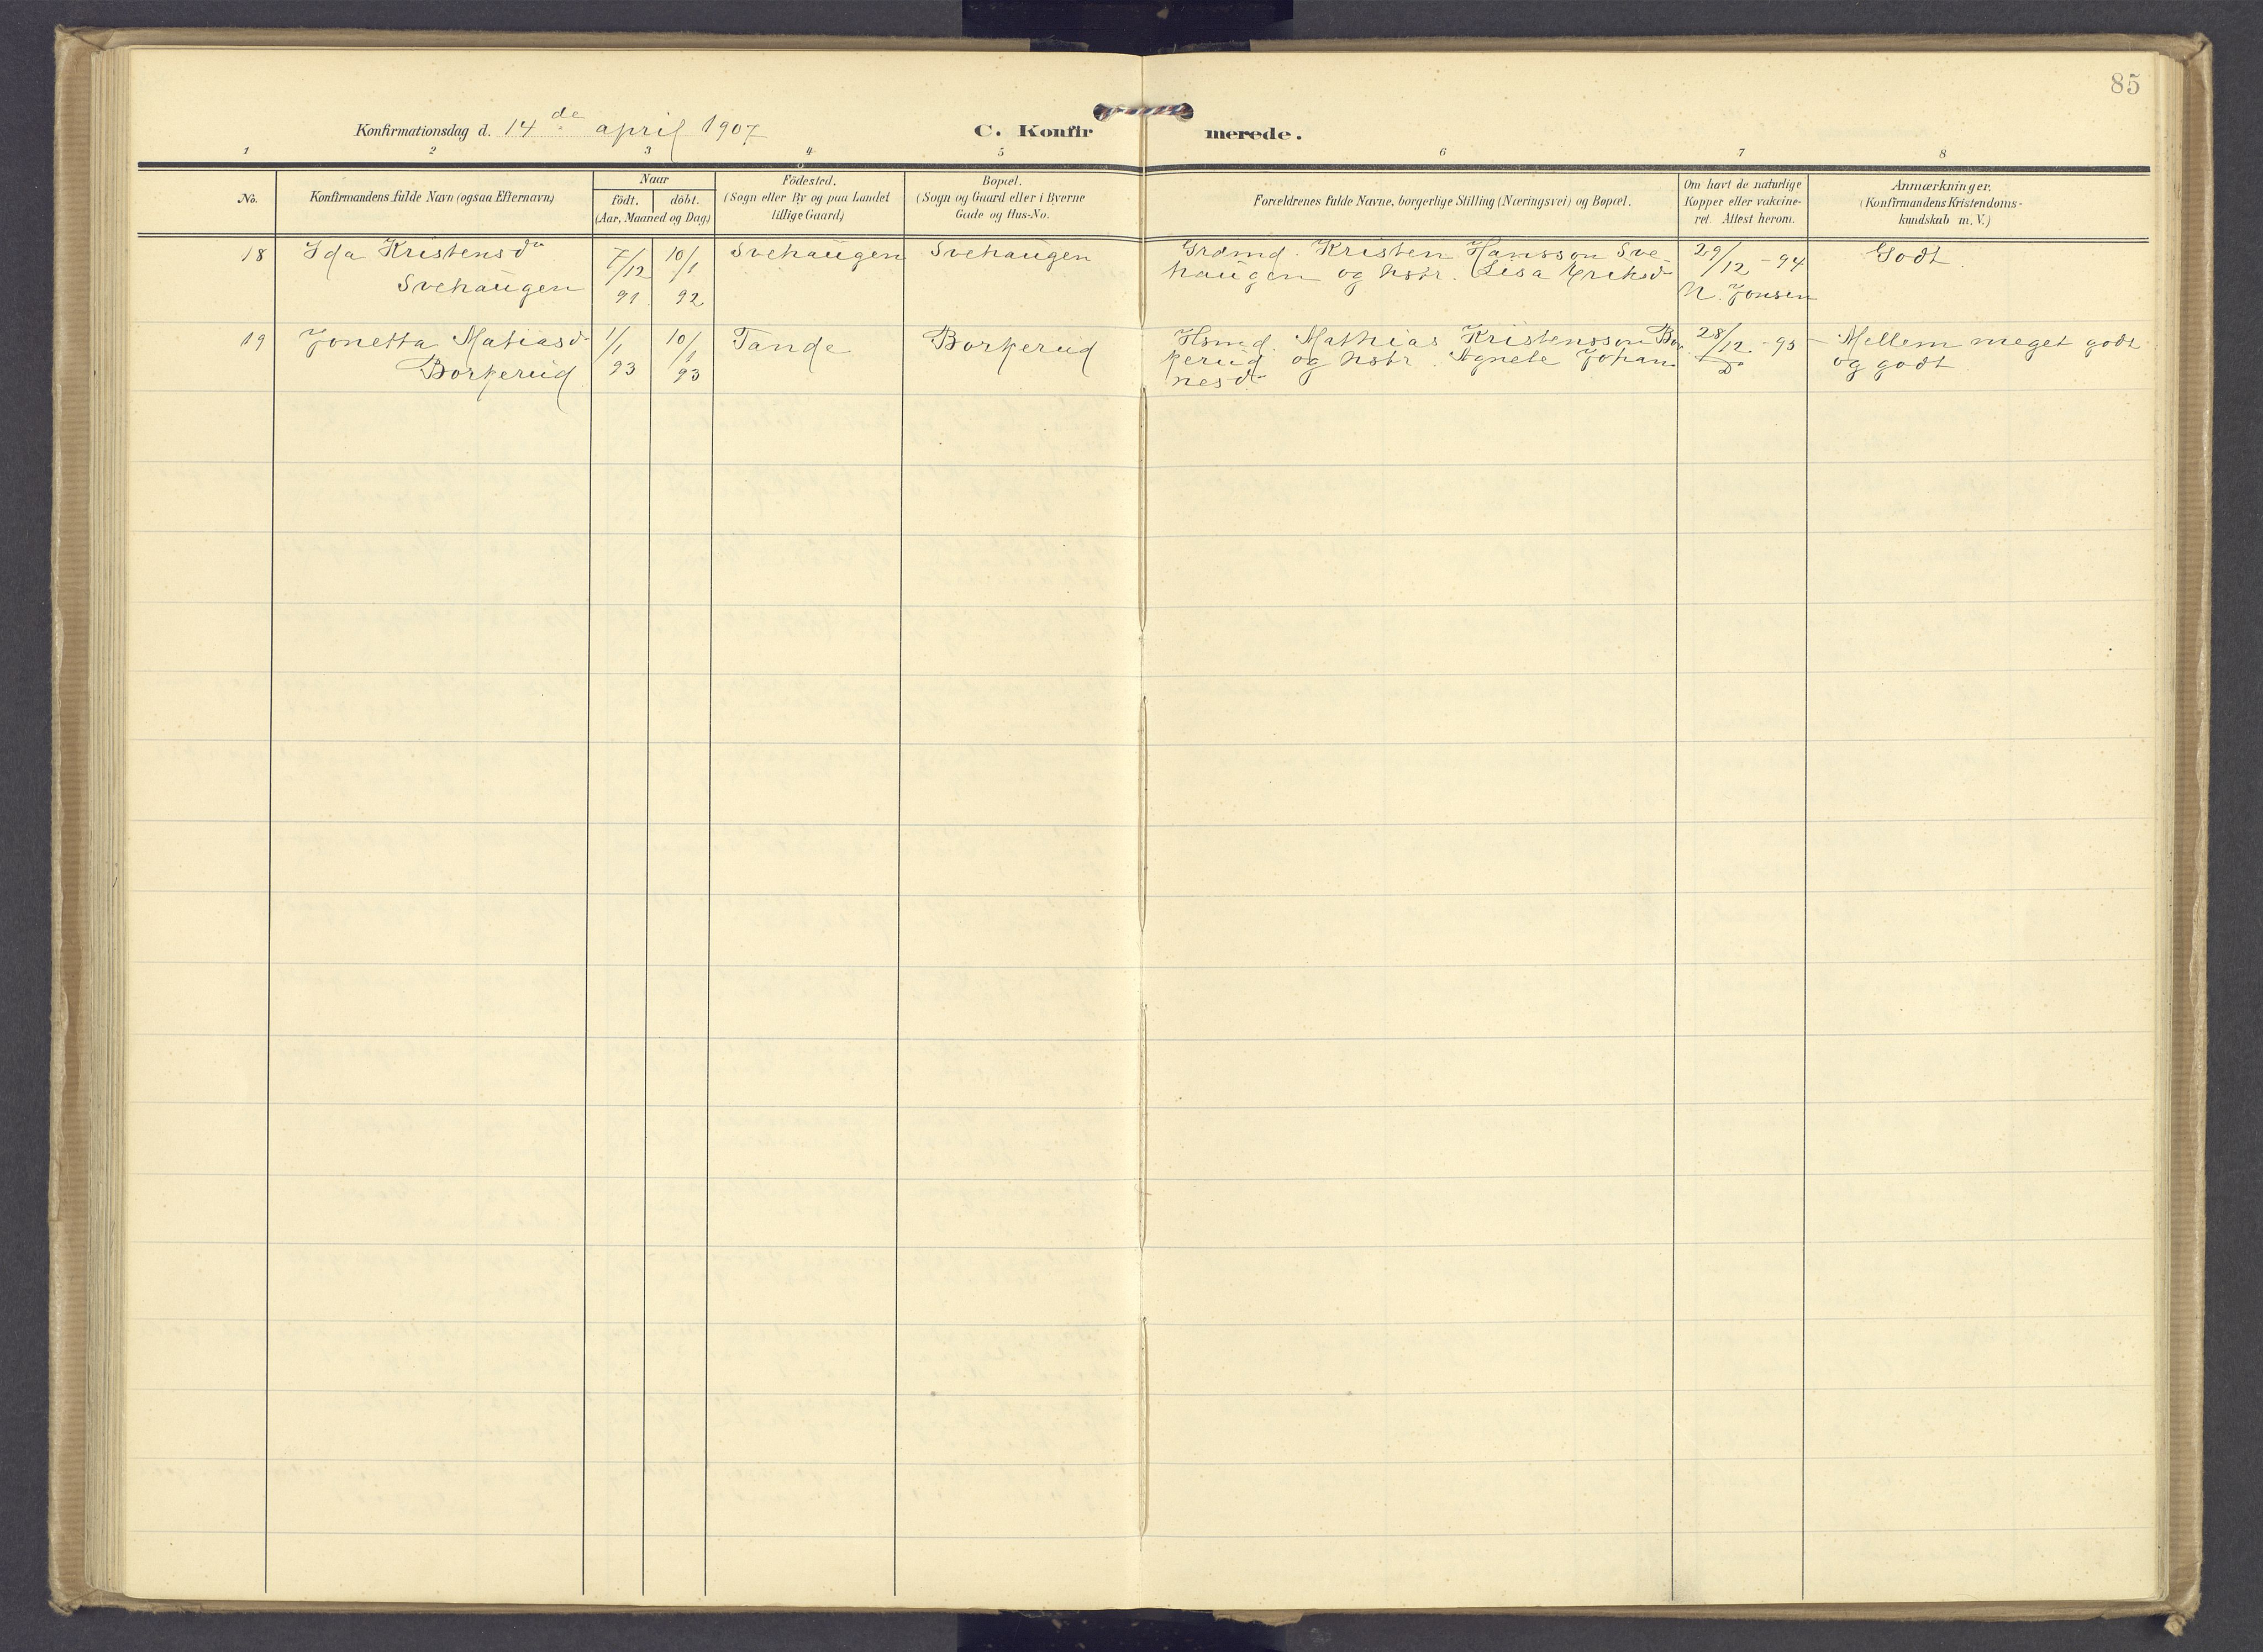 85
Konfirmationsdag d. 14de april 1907
C. Konfirmerede.
1 2 3 4 5 6 7 8
No.
Konfirmandens fulde Navn (ogsaa Efternavn)
Naar
født. døbt.
(Aar, Maaned og Dag)
Födested.
(Sogn eller By og paa Landet
tillige Gaard)
Bopæl.
(Sogn og Gaard eller i Byerne
Gade og Hus-No.
Forældrenes fulde Navne, borgerlige Stilling (Næringsvei) og Bopæl.
Om havt de naturlige
Kopper eller vakcine-
ret. Attest herom.
Anmærkninger.
(Konfirmandens Kristendoms-
kundskab m. V.)
18 Ida Kristensdr 7/12 10/1 Svehaugen Svehaugen Grdmd. Kristen Hansson Sve- 29/12 -94 Godt.
Svehaugen 91. 92 haugen og hstr. Lisa Eriksd N. Jonsen
19 Jonetta Matiasd 1/1 10/1 Tande Borkerud Hsmd. Mathias Kristensson Bor 28/12 -95 Mellem meget godt
Borkerud 93 93 kerud og hstr. Agnete Johan Do og godt
nesd